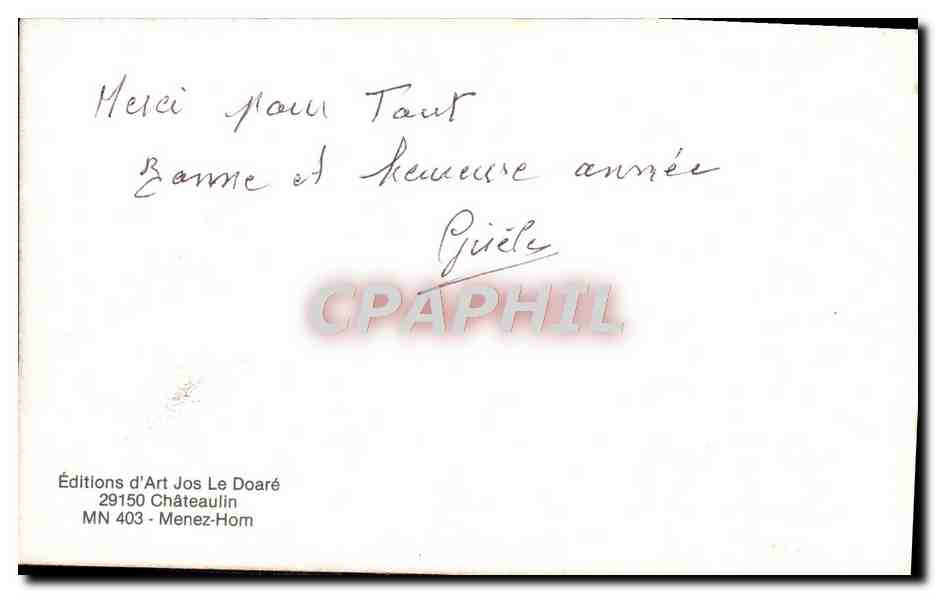 Merci pour Tout
Bonne et heureuse année
Gisèle
CPAPHIL
Éditions d'Art Jos Le Doaré
29150 Châteaulin
MN 403 - Menez-Hom